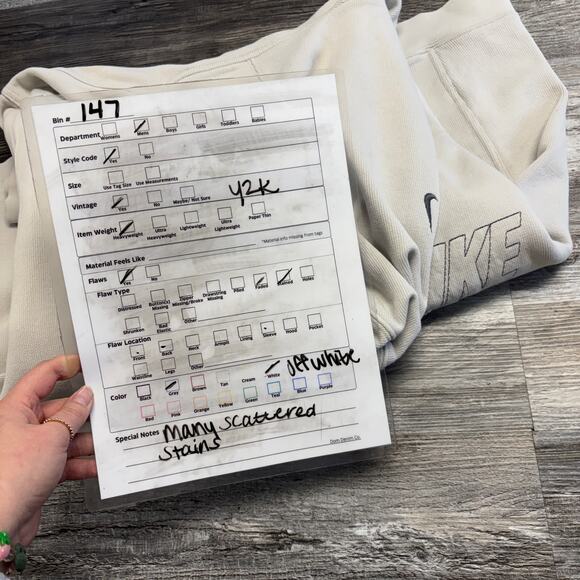 Bin # 147
Department Womens Mens Boys Girls Toddlers Babies
Style Code Yes No
Size Use Tag Size Use Measurements
Vintage Yes No Maybe/ Not Sure Y2K
Item Weight Heavyweight Ultra Heavyweight Lightweight Ultra Lightweight Paper Thin
*Material info missing from tags
Material Feels Like
Flaws Yes No
Flaw Type Distressed Button(s) Missing Zipper Missing/Broke Drawstring Missing Pilled Faded Stained Holes
Shrunken Bad Elastic Other
Flaw Location Front Back Neck Armpit Lining Sleeve Hood Pocket
Waistline Legs Other
Color Black Gray Brown Tan Cream White off white
Red Pink Orange Yellow Green Teal Blue Purple
Special Notes Many scattered
stains
Dom Denim Co.
NIKE